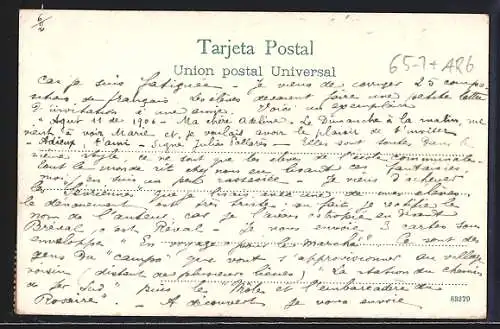 6/2
Tarjeta Postal
65-7+ AR6
Union postal Universal
car je suis fatiguée. Je viens de corriger 25 compo-
sitions de français. Les élèves devaient faire une petite lettre
d'invitation à une amie. Voici un exemplaire
"Agut 11 de 1904 - Ma chère Adeline. Le Dimanche à la matin, me
vient à voir Marie et je voulais avoir le plaisir de t'inviter
Adieux, t'ami - signe Julia Pallarès - Elles sont toutes dans le
même style ce ne sont que les élèves de l'école communale
tout le monde rit chez nous en lisant ces fantaisies
moi, j'en suis un peu rassasiée. - Je viens d'acheter
que je lisais avec une de mes élèves
le dénouement est très triste. au fait je rectifie le
nom de l'auteur, car je l'avais estropié en disant
Bréval c'est Réval. - Je vous envoie 3 cartes sous
enveloppe "En voyage pour le marché" Ce sont des
gens du "campo" que vont s'approvisionner au village
voisin (distant de plusieurs lieues) "La station du chemin
de fer Sud" puis le "Môles et l'embarcadère du
Rosaire" - A découvert je vous envoie
89270